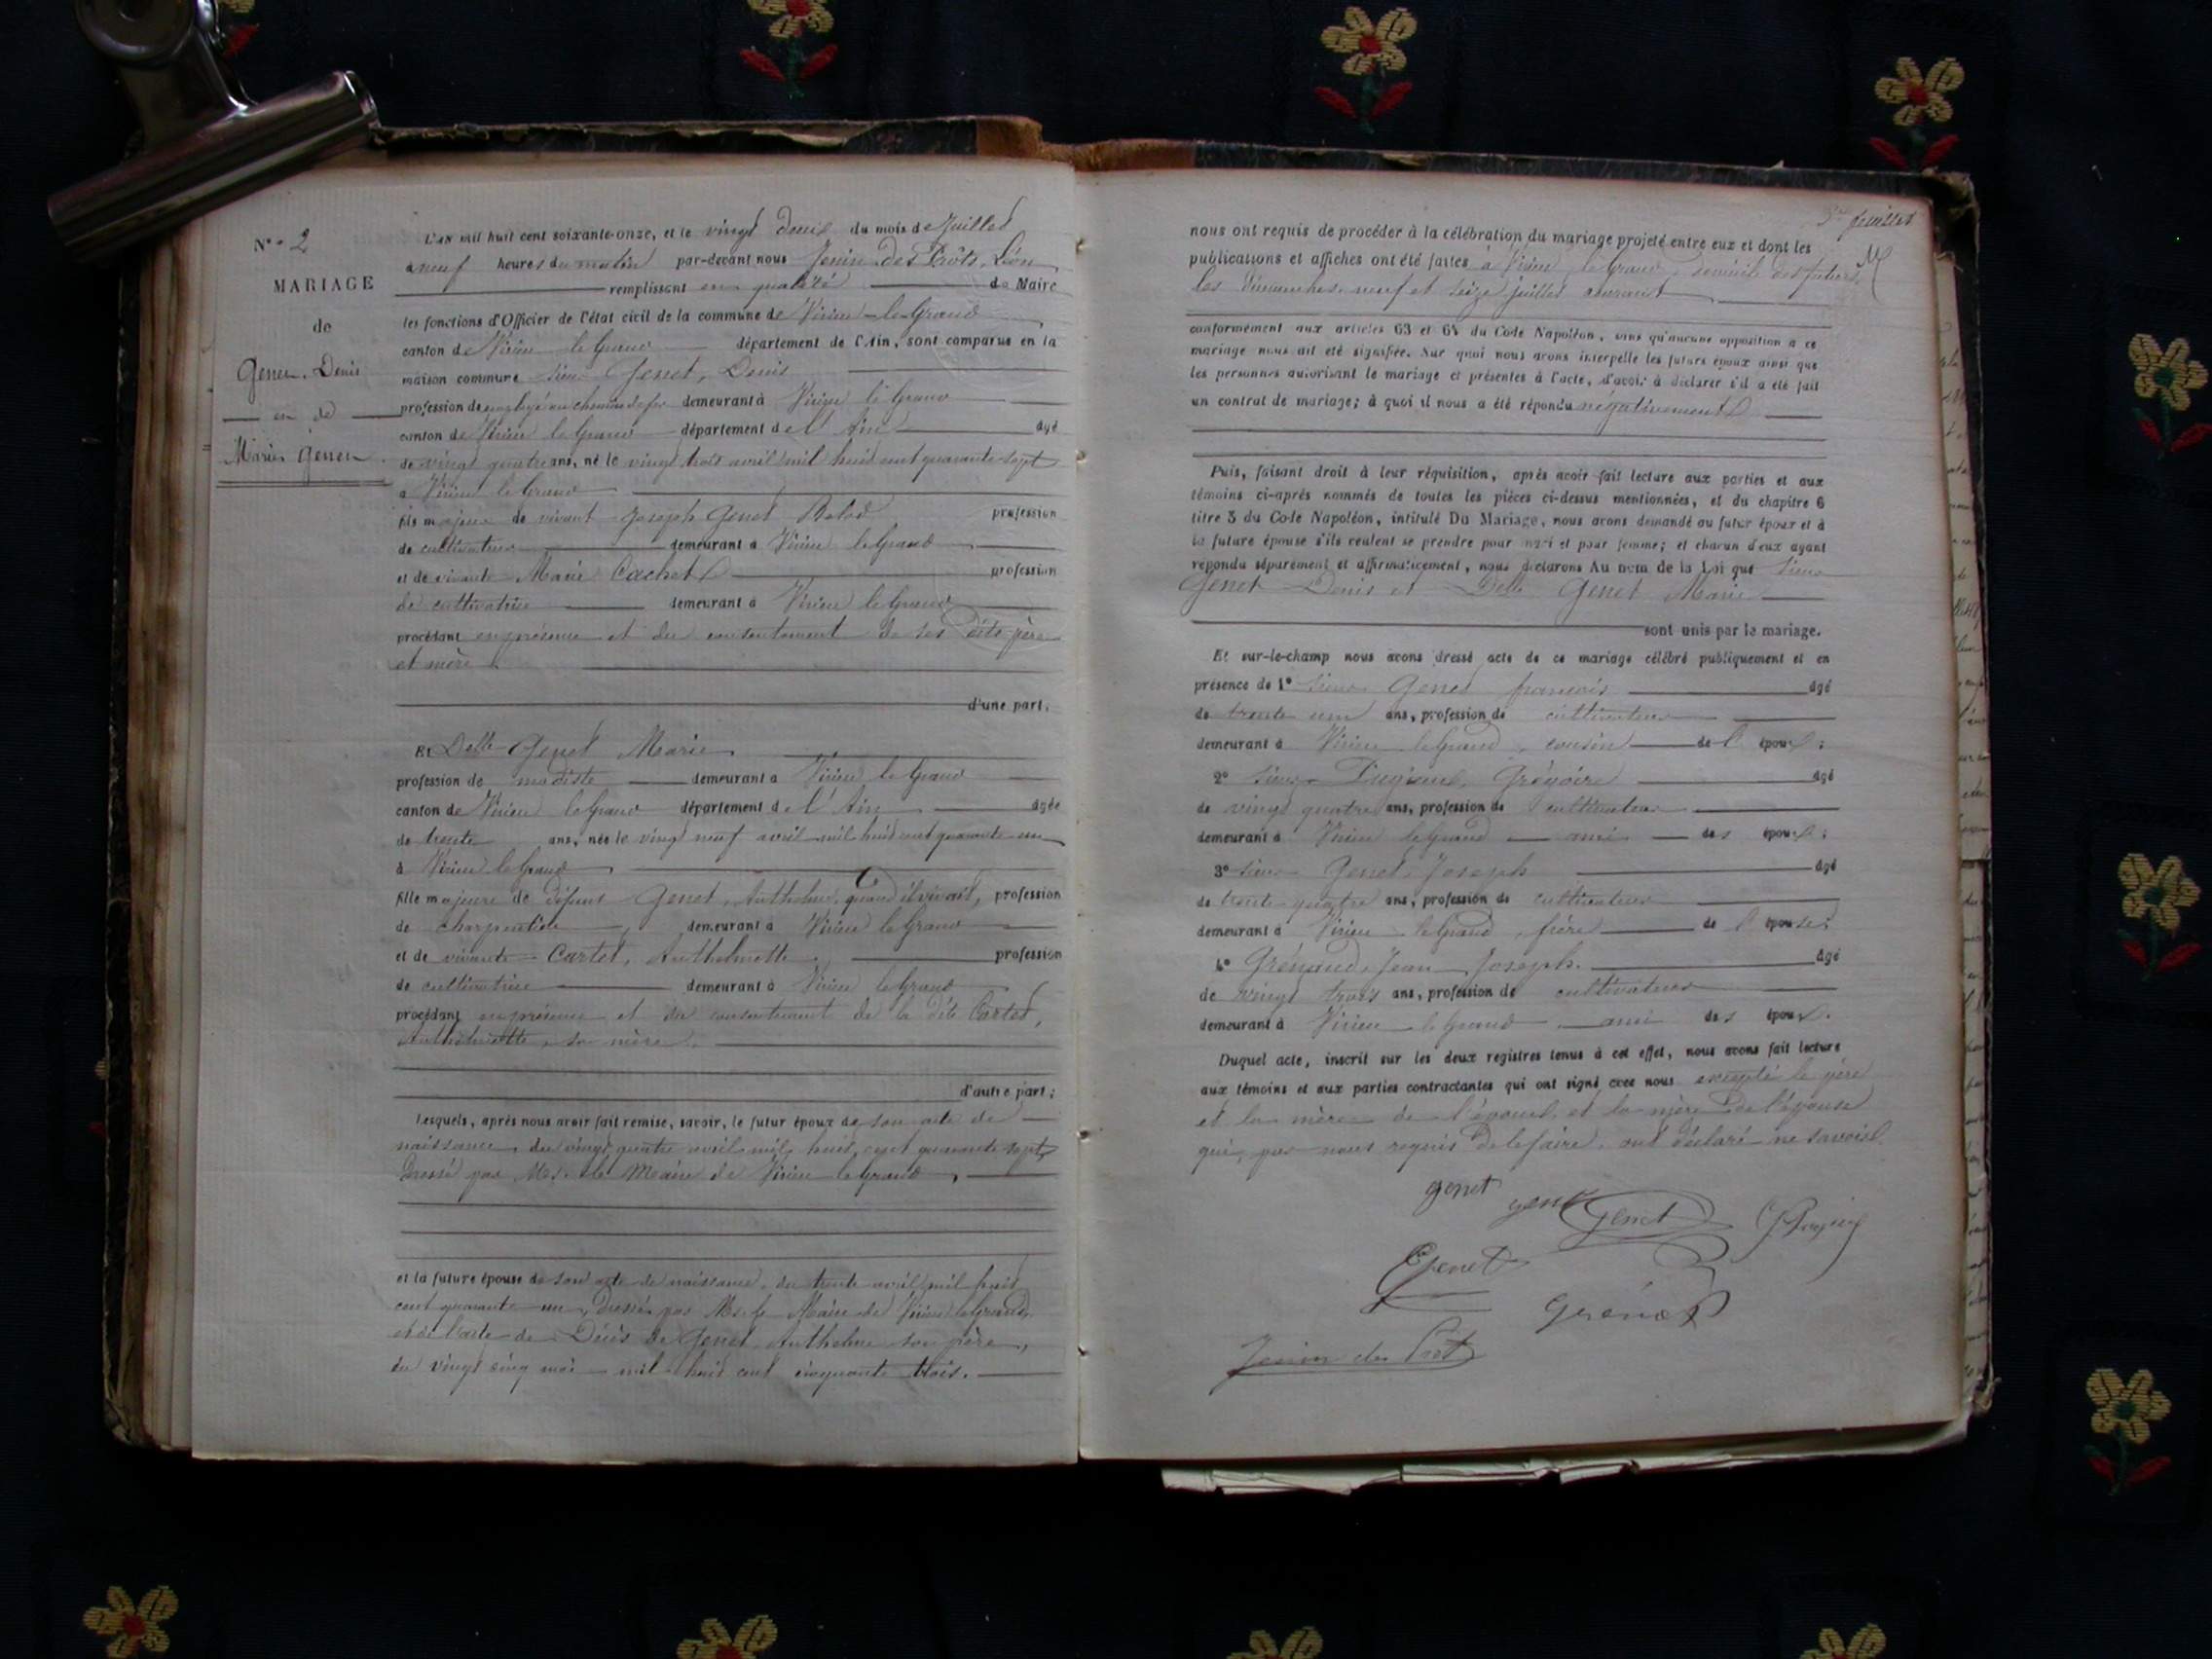 N° 2
MARIAGE
de
Genet, Denis
et de
Marie Genet
L'an mil huit cent soixante-onze, et le vingt deux du mois de Juillet
à neuf heures du matin par-devant nous Jenin des Prôts, Léon
remplissant en qualité de Maire
les fonctions d'Officier de l'état civil de la commune de Virieu-le-Grand
canton de Virieu le Grand département de l'Ain, sont comparus en la
maison commune sieur Genet, Denis
profession de employé au chemin de fer demeurant à Virieu le Grand
canton de Virieu le Grand département de l'Ain âgé
de vingt quatre ans, né le vingt trois avril mil huit cent quarante sept
à Virieu le Grand
fils majeur de vivant Joseph Genet profession
de cultivateur demeurant à Virieu le Grand
et de vivante Marie Cachet profession
de cultivatrice demeurant à Virieu le Grand
procédant en présence et du consentement de ses dits père
et mère
d'une part.
Et Delle Genet Marie
profession de modiste demeurant à Virieu le Grand
canton de Virieu le Grand département de l'Ain âgée
de trente ans, née le vingt neuf avril mil huit cent quarante un
à Virieu le Grand
fille majeure de défunt Genet, Anthelme, quand il vivait, profession
de charpentier, demeurant à Virieu le Grand
et de vivante Cartet, Anthelmette, profession
de cultivatrice demeurant à Virieu le Grand
procédant en présence et du consentement de la dite Cartet,
Anthelmette, sa mère.
d'autre part;
Lesquels, après nous avoir fait remise, savoir, le futur époux de son acte de
naissance, du vingt quatre avril mil huit cent quarante sept,
dressé par Mr. le Maire de Virieu le Grand,
et la future épouse de son acte de naissance, du trente avril mil huit
cent quarante un, dressé par Mr. le Maire de Virieu le Grand,
et de l'acte de Décès de Genet Anthelme son père,
du vingt cinq mai mil huit cent cinquante trois.
Juillet
nous ont requis de procéder à la célébration du mariage projeté entre eux et dont les
publications et affiches ont été faites à Virieu le Grand, domicile des futurs,
les dimanches neuf et seize juillet courant
conformément aux articles 63 et 64 du Code Napoléon, sans qu'aucune opposition à ce
mariage nous ait été signifiée. Sur quoi nous avons interpellé les futurs époux ainsi que
les personnes autorisant le mariage et présentes à l'acte, d'avoir à déclarer s'il a été fait
un contrat de mariage; à quoi il nous a été répondu négativement
Puis, faisant droit à leur réquisition, après avoir fait lecture aux parties et aux
témoins ci-après nommés de toutes les pièces ci-dessus mentionnées, et du chapitre 6
titre 5 du Code Napoléon, intitulé Du Mariage, nous avons demandé au futur époux et à
la future épouse s'ils veulent se prendre pour mari et pour femme; et chacun d'eux ayant
répondu séparément et affirmativement, nous déclarons Au nom de la Loi que sieur
Genet Denis et Delle Genet Marie
sont unis par le mariage.
Et sur-le-champ nous avons dressé acte de ce mariage célébré publiquement et en
présence de 1° sieur Genet françois âgé
de trente un ans, profession de cultivateur
demeurant à Virieu le Grand, cousin de l'époux;
2° sieur Grégoire âgé
de vingt quatre ans, profession de cultivateur
demeurant à Virieu le Grand ami des époux;
3° sieur Genet Joseph âgé
de trente quatre ans, profession de cultivateur
demeurant à Virieu le Grand, frère de l'épouse;
4° Grénaud, Jean Joseph. âgé
de vingt trois ans, profession de cultivateur
demeurant à Virieu le Grand ami des époux.
Duquel acte, inscrit sur les deux registres tenus à cet effet, nous avons fait lecture
aux témoins et aux parties contractantes qui ont signé avec nous excepté le père
et la mère de l'époux, et la mère de l'épouse
qui, par nous requis de le faire, ont déclaré ne savoir.
genet
genet
Genet
Genet
Jenin des Prots